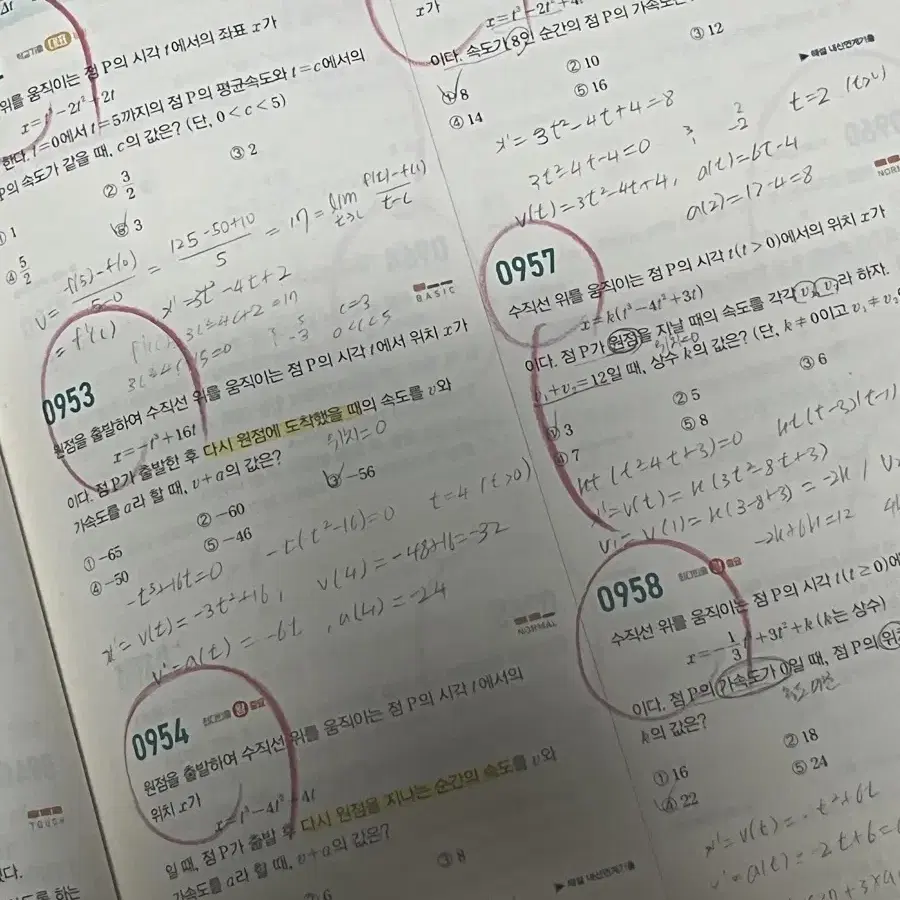 위를 움직이는 점 P의 시각 t에서의 좌표 x가
x=t³-2t²+2t
한다. t=0에서 t=5까지의 점 P의 평균속도와 t=c에서의
P의 속도가 같을 때, c의 값은? (단, 0<c<5)
① 1 ② 3/2 ③ 2
④ 5/2 ⑤ 3
V= f(5)-f(0) / 5-0 = 125-50+10 / 5 = 17 = lim
= f'(c) x'=3t²-4t+2
c=3
0<c<5
BASIC
0953
원점을 출발하여 수직선 위를 움직이는 점 P의 시각 t에서 위치 x가
x=-t³+16t
이다. 점 P가 출발한 후 다시 원점에 도착했을 때의 속도를 v와
가속도를 a라 할 때, v+a의 값은?
위치=0
① -65 ② -60 ③ -56
④ -50 ⑤ -46
-t³+16t=0 -t(t²-16)=0 t=4 (t>0)
x'=v(t)=-3t²+16, v(4)=-48+16=-32
v'=a(t)=-6t, a(4)=-24
NORMAL
0954
원점을 출발하여 수직선 위를 움직이는 점 P의 시각 t에서의
위치 x가
x=t³-4t²+4t
일 때, 점 P가 출발 후 다시 원점을 지나는 순간의 속도를 v와
가속도를 a라 할 때, v+a의 값은?
③ 8
TOUCH
x가
이다. 속도가 8인 순간의 점 P의
① 8 ② 10 ③ 12
④ 14 ⑤ 16
▶ 해설 내신연계기출
x'=3t²-4t+4=8
3t²-4t-4=0 3 2 t=2 (t>0)
-2
v(t)=3t²-4t+4, a(t)=6t-4
a(2)=12-4=8
0957
수직선 위를 움직이는 점 P의 시각 t(t>0)에서의 위치 x가
x=k(t³-4t²+3t)
이다. 점 P가 원점을 지날 때의 속도를 각각 v₁, v₂라 하자.
v₁+v₂=12일 때, 상수 k의 값은? (단, k≠0이고 v₁≠v₂
① 3 ② 5 ③ 6
④ 7 ⑤ 8
kt(t²-4t+3)=0 kt(t-3)(t-1)
x'=v(t)=k(3t²-8t+3)
v₁=v(1)=k(3-8+3)=-2k / v₂
-2k+6k=12
0958
수직선 위를 움직이는 점 P의 시각 t(t≥0)에
x=-1/3t³+3t²+k (k는 상수)
이다. 점 P의 가속도가 0일 때, 점 P의 위
k의 값은?
① 16 ② 18
④ 22 ⑤ 24
x'=v(t)=-t²+6t
v'=a(t)=-2t+6=